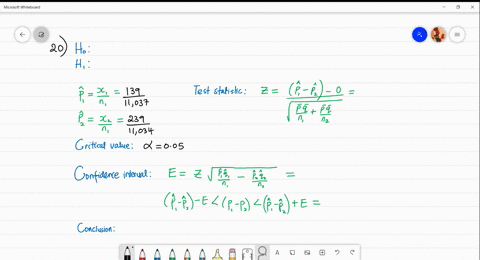 Microsoft Whiteboard
20) H₀:
H₁:
p̂₁ = x₁/n₁ = 139/11,037
Test statistic: Z = ((p̂₁ - p̂₂) - 0)/√(p̄q̄/n₁ + p̄q̄/n₂) =
p̂₂ = x₂/n₂ = 239/11,034
Critical value: α = 0.05
Confidence interval: E = Z √(p̂₁q̂₁/n₁ - p̂₂q̂₂/n₂) =
(p̂₁-p̂₂) - E < (p₁-p₂) < (p̂₁-p̂₂) + E =
Conclusion: